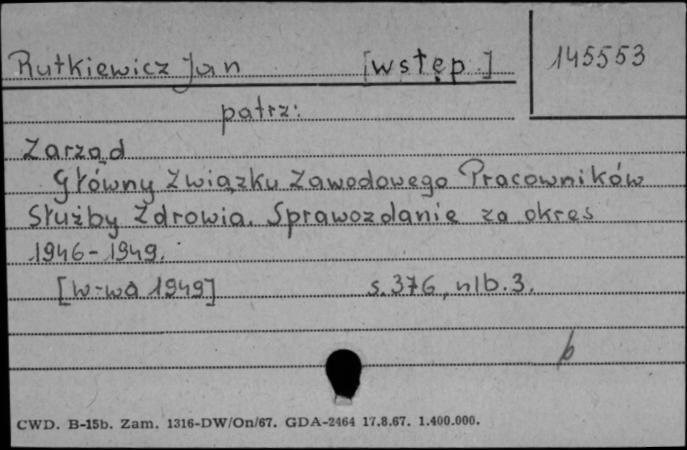 Rutkiewicz Jan [wstęp] 145553
patrz:
Zarząd
Główny Związku Zawodowego Pracowników
Służby Zdrowia. Sprawozdanie za okres
1946-1949.
[W-wa 1949] s. 376, nlb. 3.
p
CWD. B-15b. Zam. 1316-DW/On/67. GDA-2464 17.8.67. 1.400.000.